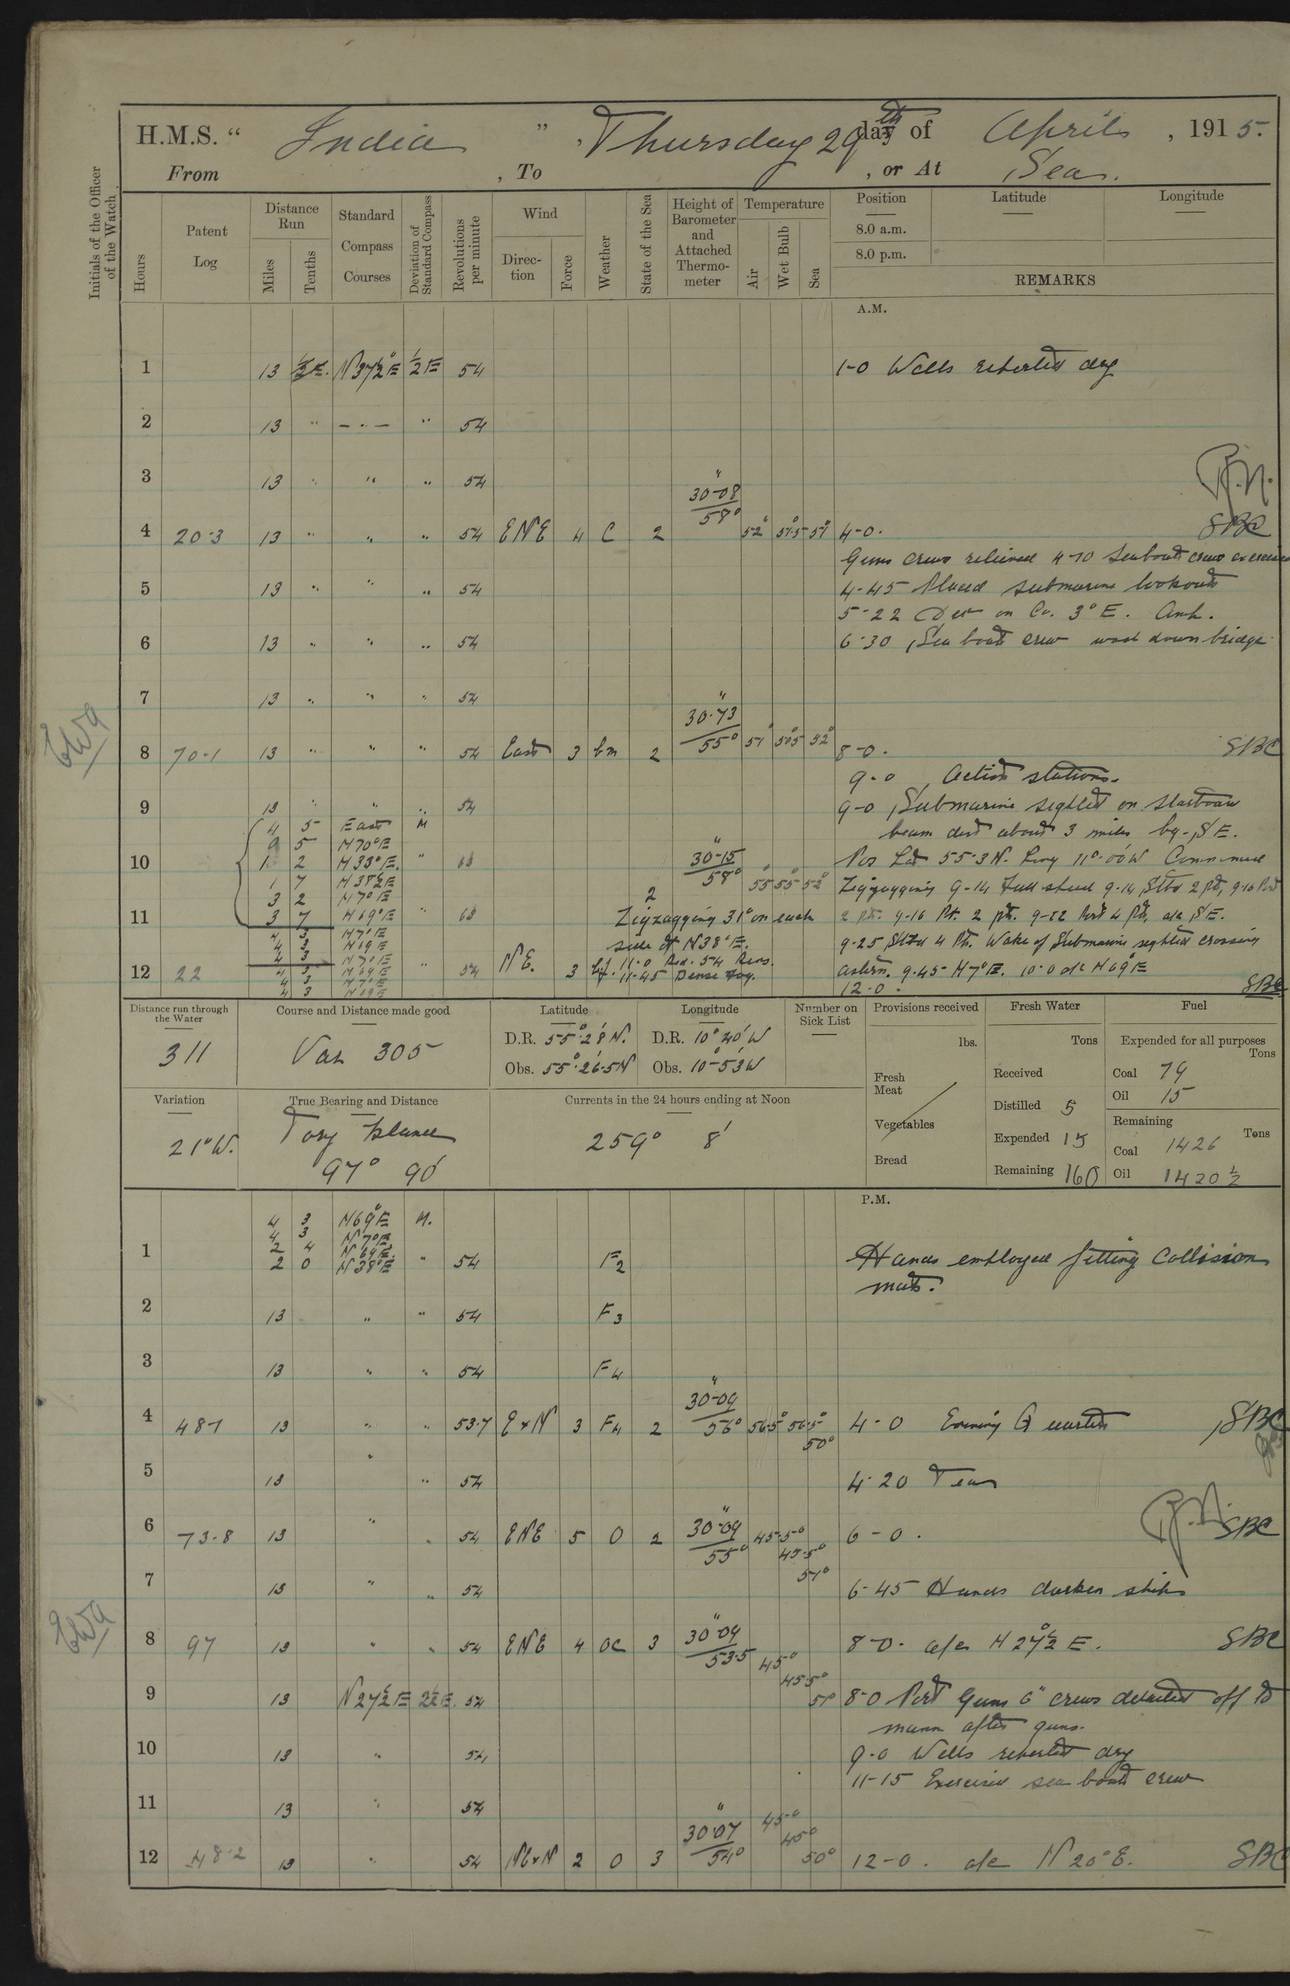 H.M.S. " India ", Thursday 29th day of April, 1915.
From , To , or At Sea.
Initials of the Officer of the Watch
Hours
Patent Log
Distance Run
Miles
Tenths
Standard Compass Courses
Deviation of Standard Compass
Revolutions per minute
Wind
Direction
Force
Weather
State of the Sea
Height of Barometer and Attached Thermometer
Temperature
Air
Wet Bulb
Sea
Position
8.0 a.m.
8.0 p.m.
Latitude
Longitude
REMARKS
A.M.
1 13 N37½°E ½E 54 1-0 Wells reported dry
2 13 " — · — " 54
3 13 " " " 54 30·08
4 20·3 13 " " " 54 ENE 4 C 2 58° 52° 51·5° 51° 4-0. SBC
Guns crews relieved 4-10 Seaboats crews exercised
5 13 " " " 54 4-45 Placed submarine lookouts
5-22 Dev on Co. 3°E. Amp.
6 13 " " " 54 6·30 Sea boats crew wash down bridge
7 13 " " " 54 30·73
8 70·1 13 " " " 54 East 3 bm 2 55° 51° 50·5 52° 8-0. SBC
9-0 Action stations.
9 13 " " " 54 9-0 Submarine sighted on starboard
4 5 East beam dist about 3 miles bg. SE.
9 5 N70°E
10 1 2 N33°E " 68 30·15 Pos Lat 55·3N. Long 11°·00'W Commenced
1 7 N38½E 58° 55° 55° 52° Zigzagging 9-14 Full speed 9-14 Stbd 2 pts, 9-16 Port
3 2 N7°E 2
11 3 7 N69°E " 68 Zigzagging 31° on each 2 pts. 9-16 Pt. 2 pts. 9-22 Port 4 pts, a/c SE.
4 3 N7°E side of N38°E.
4 3 N69E 9-25 Stbd 4 Pts. Wake of Submarine sighted crossing
4 3 N70E 11-0 Red. 54 Revs.
12 22 4 3 N69E " 54 NE. 3 f. 11-45 Dense Fog. astern. 9·45- N7°E. 10·0 a/c N69°E
4 3 N7°E
4 3 N69E 12-0. SBC
Distance run through the Water
311
Course and Distance made good
Var 305
Latitude
D.R. 55°·28'N.
Obs. 55°·26·5N
Longitude
D.R. 10° 40'W
Obs. 10°-53'W
Number on Sick List
Provisions received
lbs.
Fresh Meat
Vegetables
Bread
Fresh Water
Tons
Received
Distilled 5
Expended 15
Remaining 160
Fuel
Expended for all purposes
Tons
Coal 79
Oil 15
Remaining
Tons
Coal 1426
Oil 1420½
Variation
21°W.
True Bearing and Distance
Tory Island
97° 90'
Currents in the 24 hours ending at Noon
259° 8'
P.M.
4 3 N69°E N.
4 3 N7°E
2 4 N69E
1 2 0 N38°E " 54 F2 Hands employed fitting Collision
mats.
2 13 " " 54 F3
3 13 " " 54 F4
4 48·1 13 " " 53·7 ExN 3 F4 2 30·09 56° 56·5° 56·5° 50° 4-0 Evening Quarters SBC
5 13 " " 54 4·20 Tea
6 73·8 13 " " 54 ENE 5 O 2 30·09 55° 45·5° 45·5° 51° 6-0. SBC
7 13 " " 54 6-45 Hands darken ship
8 97 13 " " 54 ENE 4 OC 3 30·09 53·5 45° 8-0. a/c N27½°E. SBC
45·5°
9 13 N27½°E 2½E. 54 51° 8-0 Port Guns 6" crews detailed off to
mann after guns.
10 13 " 54 9-0 Wells reported dry
11-15 Exercised sea boats crew
11 13 " 54
12 48·2 13 " 54 NExN 2 O 3 30·07 54° 45·0 45° 50° 12-0. a/c N20°E. SBC